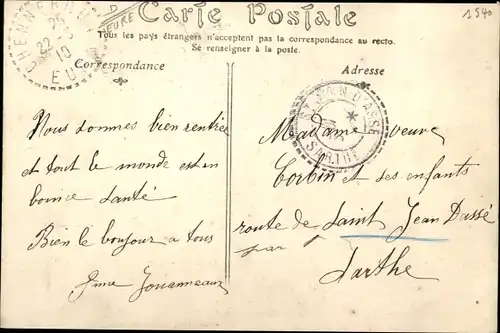 1540
Carte Postale
Tous les pays étrangers n'acceptent pas la correspondance au recto.
Se renseigner à la poste.
Correspondance
Adresse
Nous sommes bien rentrée
et tout le monde est en
bonne santé
Bien le bonjour a tous
Jouanneaux
Madame veuve
Corbin et ses enfants
route de Saint Jean Dassé
par
Sarthe
ST JEAN D'ASSE
SARTHE
25
22
10
EURE